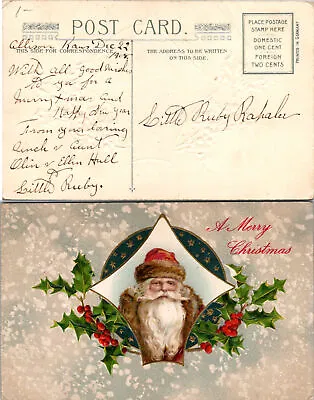 1-
POST CARD.
THIS SIDE FOR CORRESPONDENCE
THE ADDRESS TO BE WRITTEN
ON THIS SIDE.
PLACE POSTAGE
STAMP HERE
DOMESTIC
ONE CENT
FOREIGN
TWO CENTS
PRINTED IN GERMANY
Allison Kans Dec 22
With all good wishes
To you for a
Merry Xmas and
Happy New Year
From your loving
Uncle & Aunt
Olin & Ellen Hall
Little Ruby.
Little Ruby
A Merry
Christmas